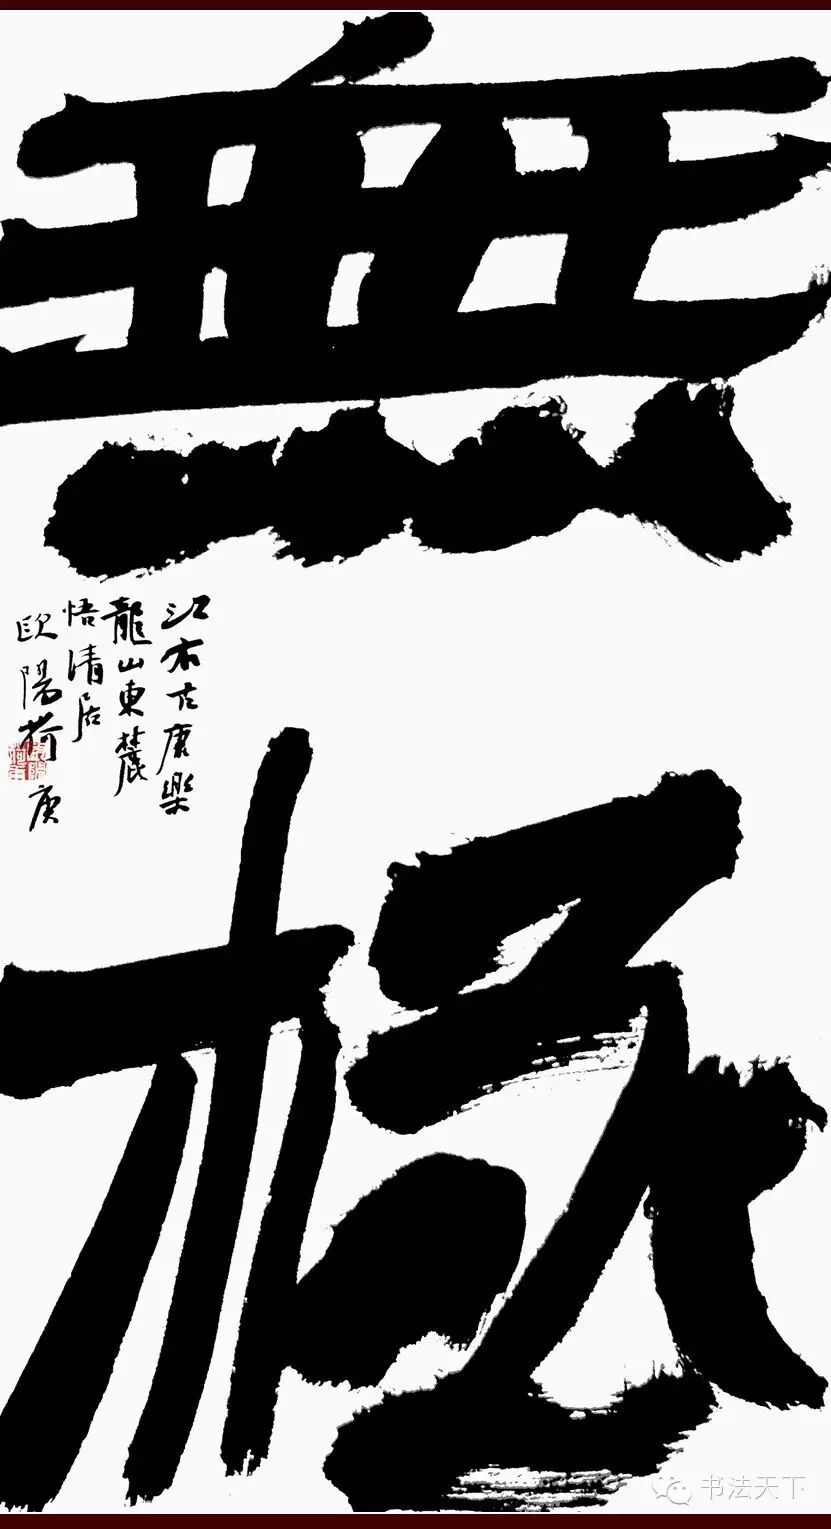 無
極
江右古康樂
龍山東麓
悟清居
歐陽荷庚
书法天下